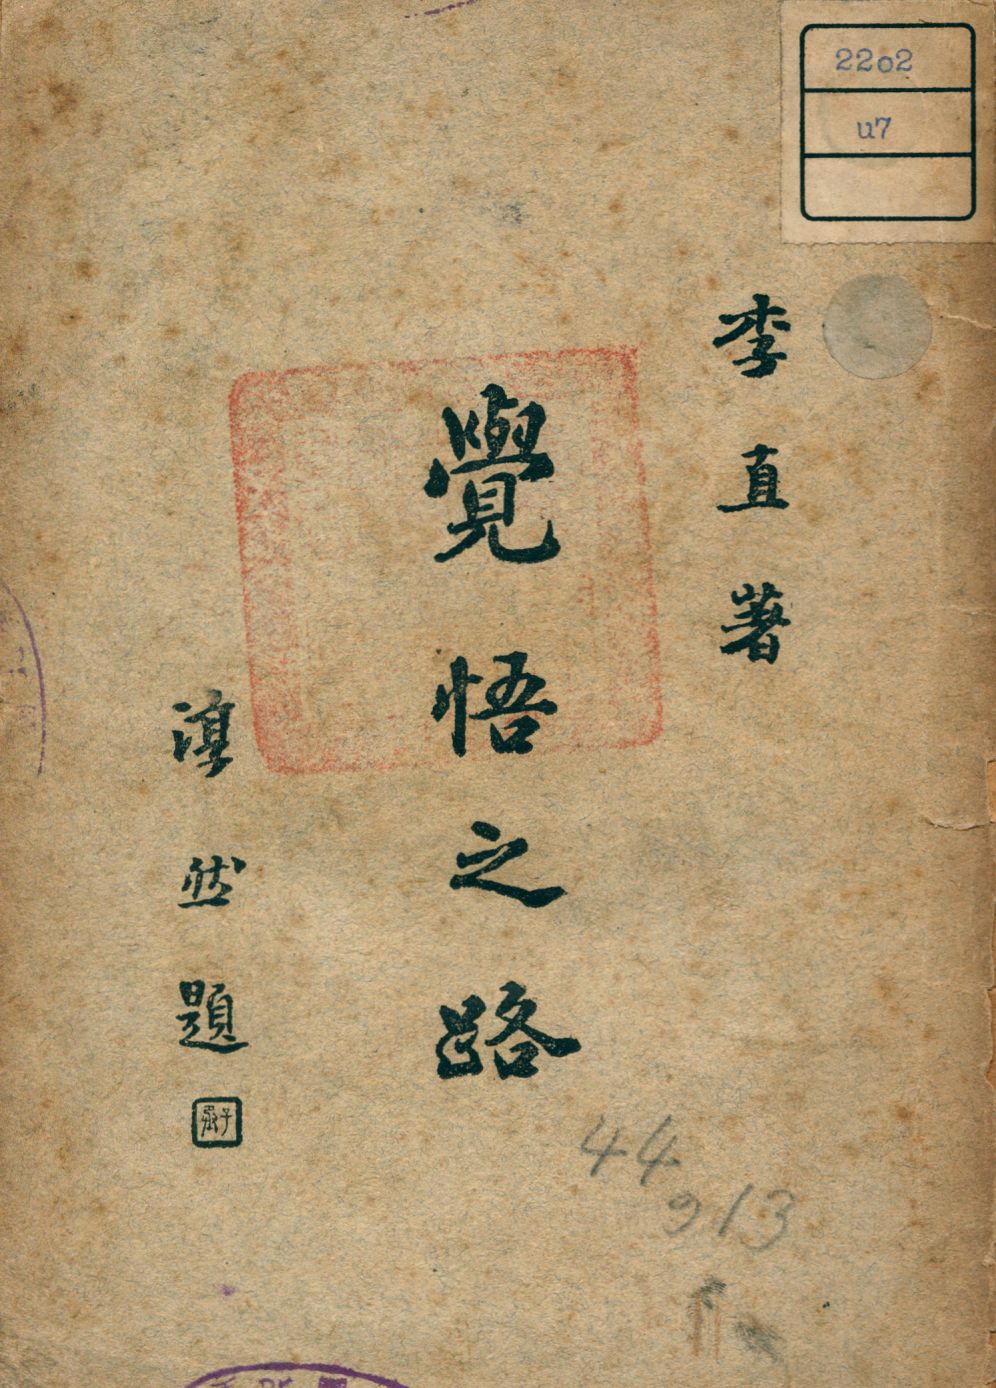 李直著
覺悟之路
淳然題
2202
u7
44
913